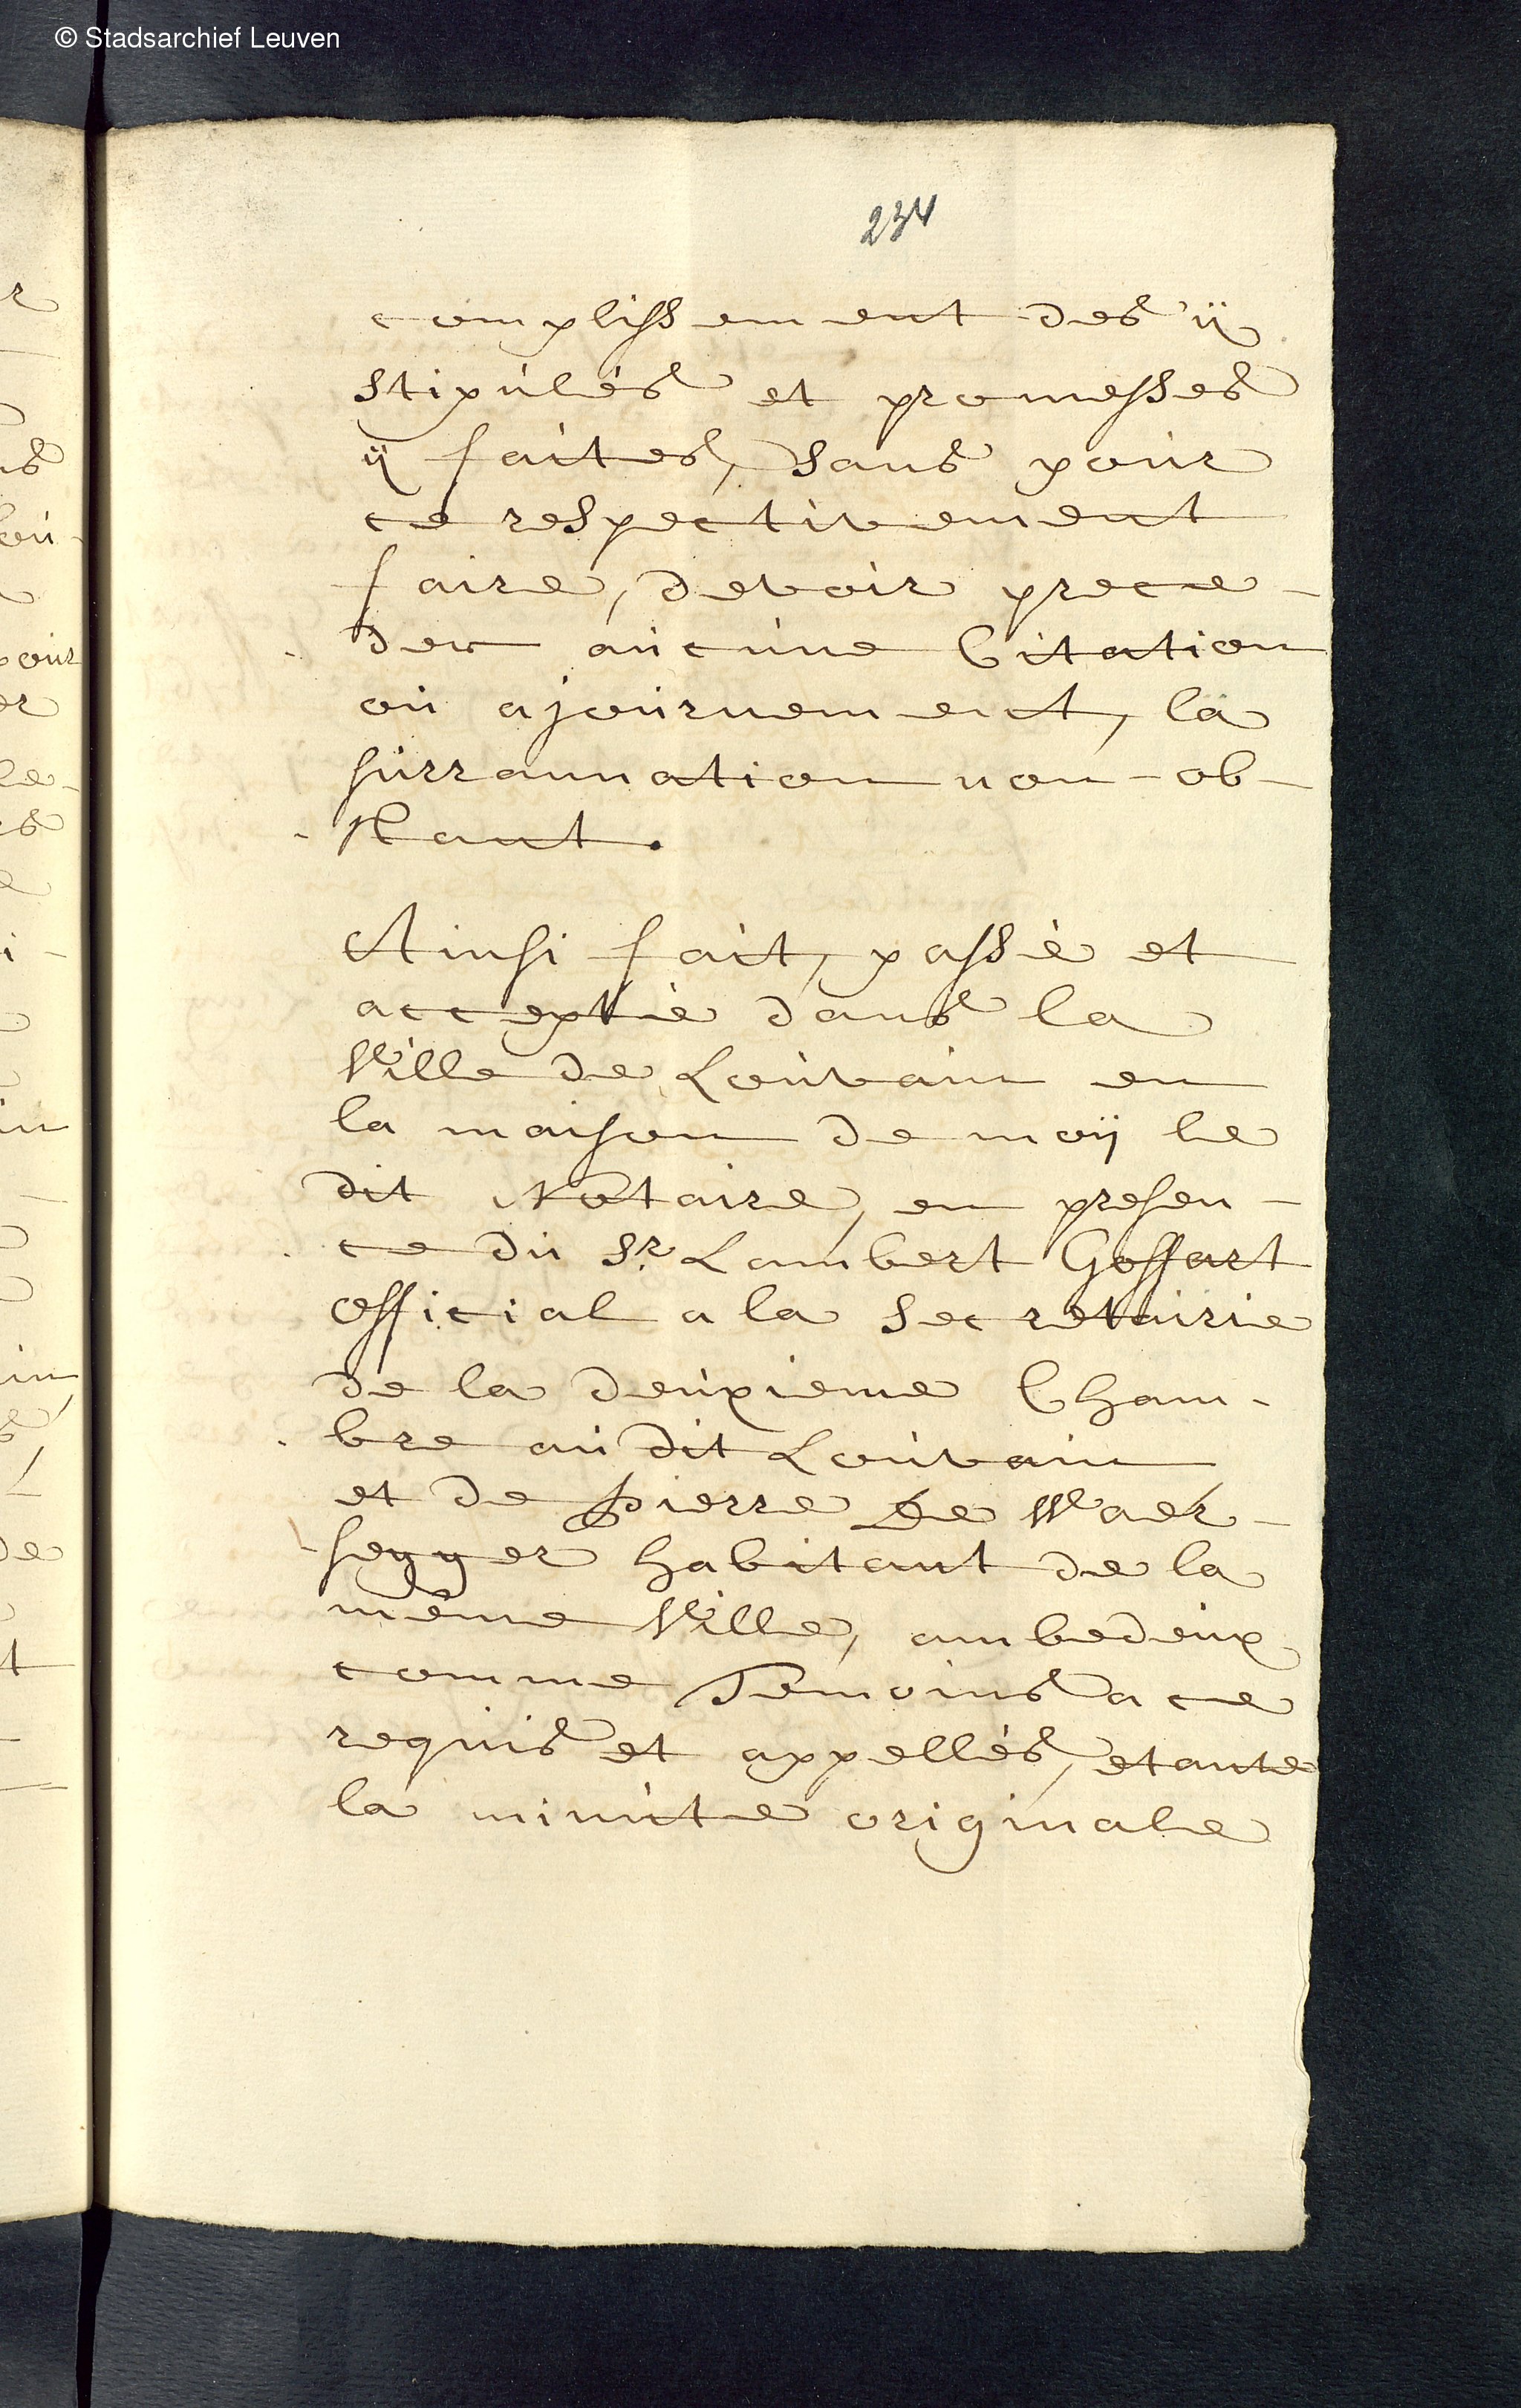 © Stadsarchief Leuven
234
complissement des ÿ
stipulés et promesses
ÿ faites, sans pour
ce respectivement
faire, devoir prece-
der aucune Citation
ou ajournement, la
surrannation non-ob-
stant.
Ainsi fait, passé et
accepté dans la
Ville de Louvain en
la maison de moÿ le
dit Notaire, en presen-
ce du Sr. Lambert Goffart
official a la Secretairie
de la deuxieme Cham-
bre au dit Louvain
et de Pierre De Waer-
segger habitant de la
même Ville, ambedeux
comme Temoins a ce
requis et appellés, etante
la minute originale